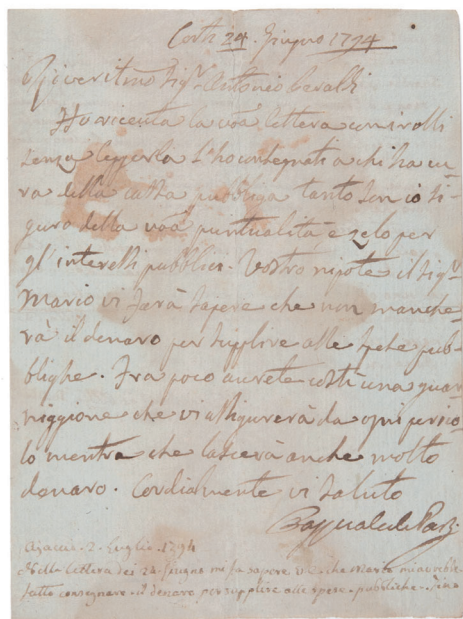 Corti 24. Giugno 1794
Riveritmo Sigr. Antonio
Ho ricevuta la vôa lettera con i rolli
senza leggerla l'ho consegnati a chi ha cu-
ra della cassa pubbliga tanto son io si-
guro della vôa puntualità e zelo per
gl'interessi pubblici. Vostro nipote il Sigr
Mario vi farà sapere che non manche-
rà il denaro per supplire alle spese pub-
blighe. Fra poco averete costì una guar-
niggione che vi assigurerà da ogni perico-
lo mentra che lascerà anche molto
denaro. Cordialmente vi saluto
Pasquale de Paoli
Ajaccio. 2. Luglio. 1794
Nella lettera dei 24 Giugno mi fa sapere che
fatto consegnare il denaro per supplire alle spese pubbliche